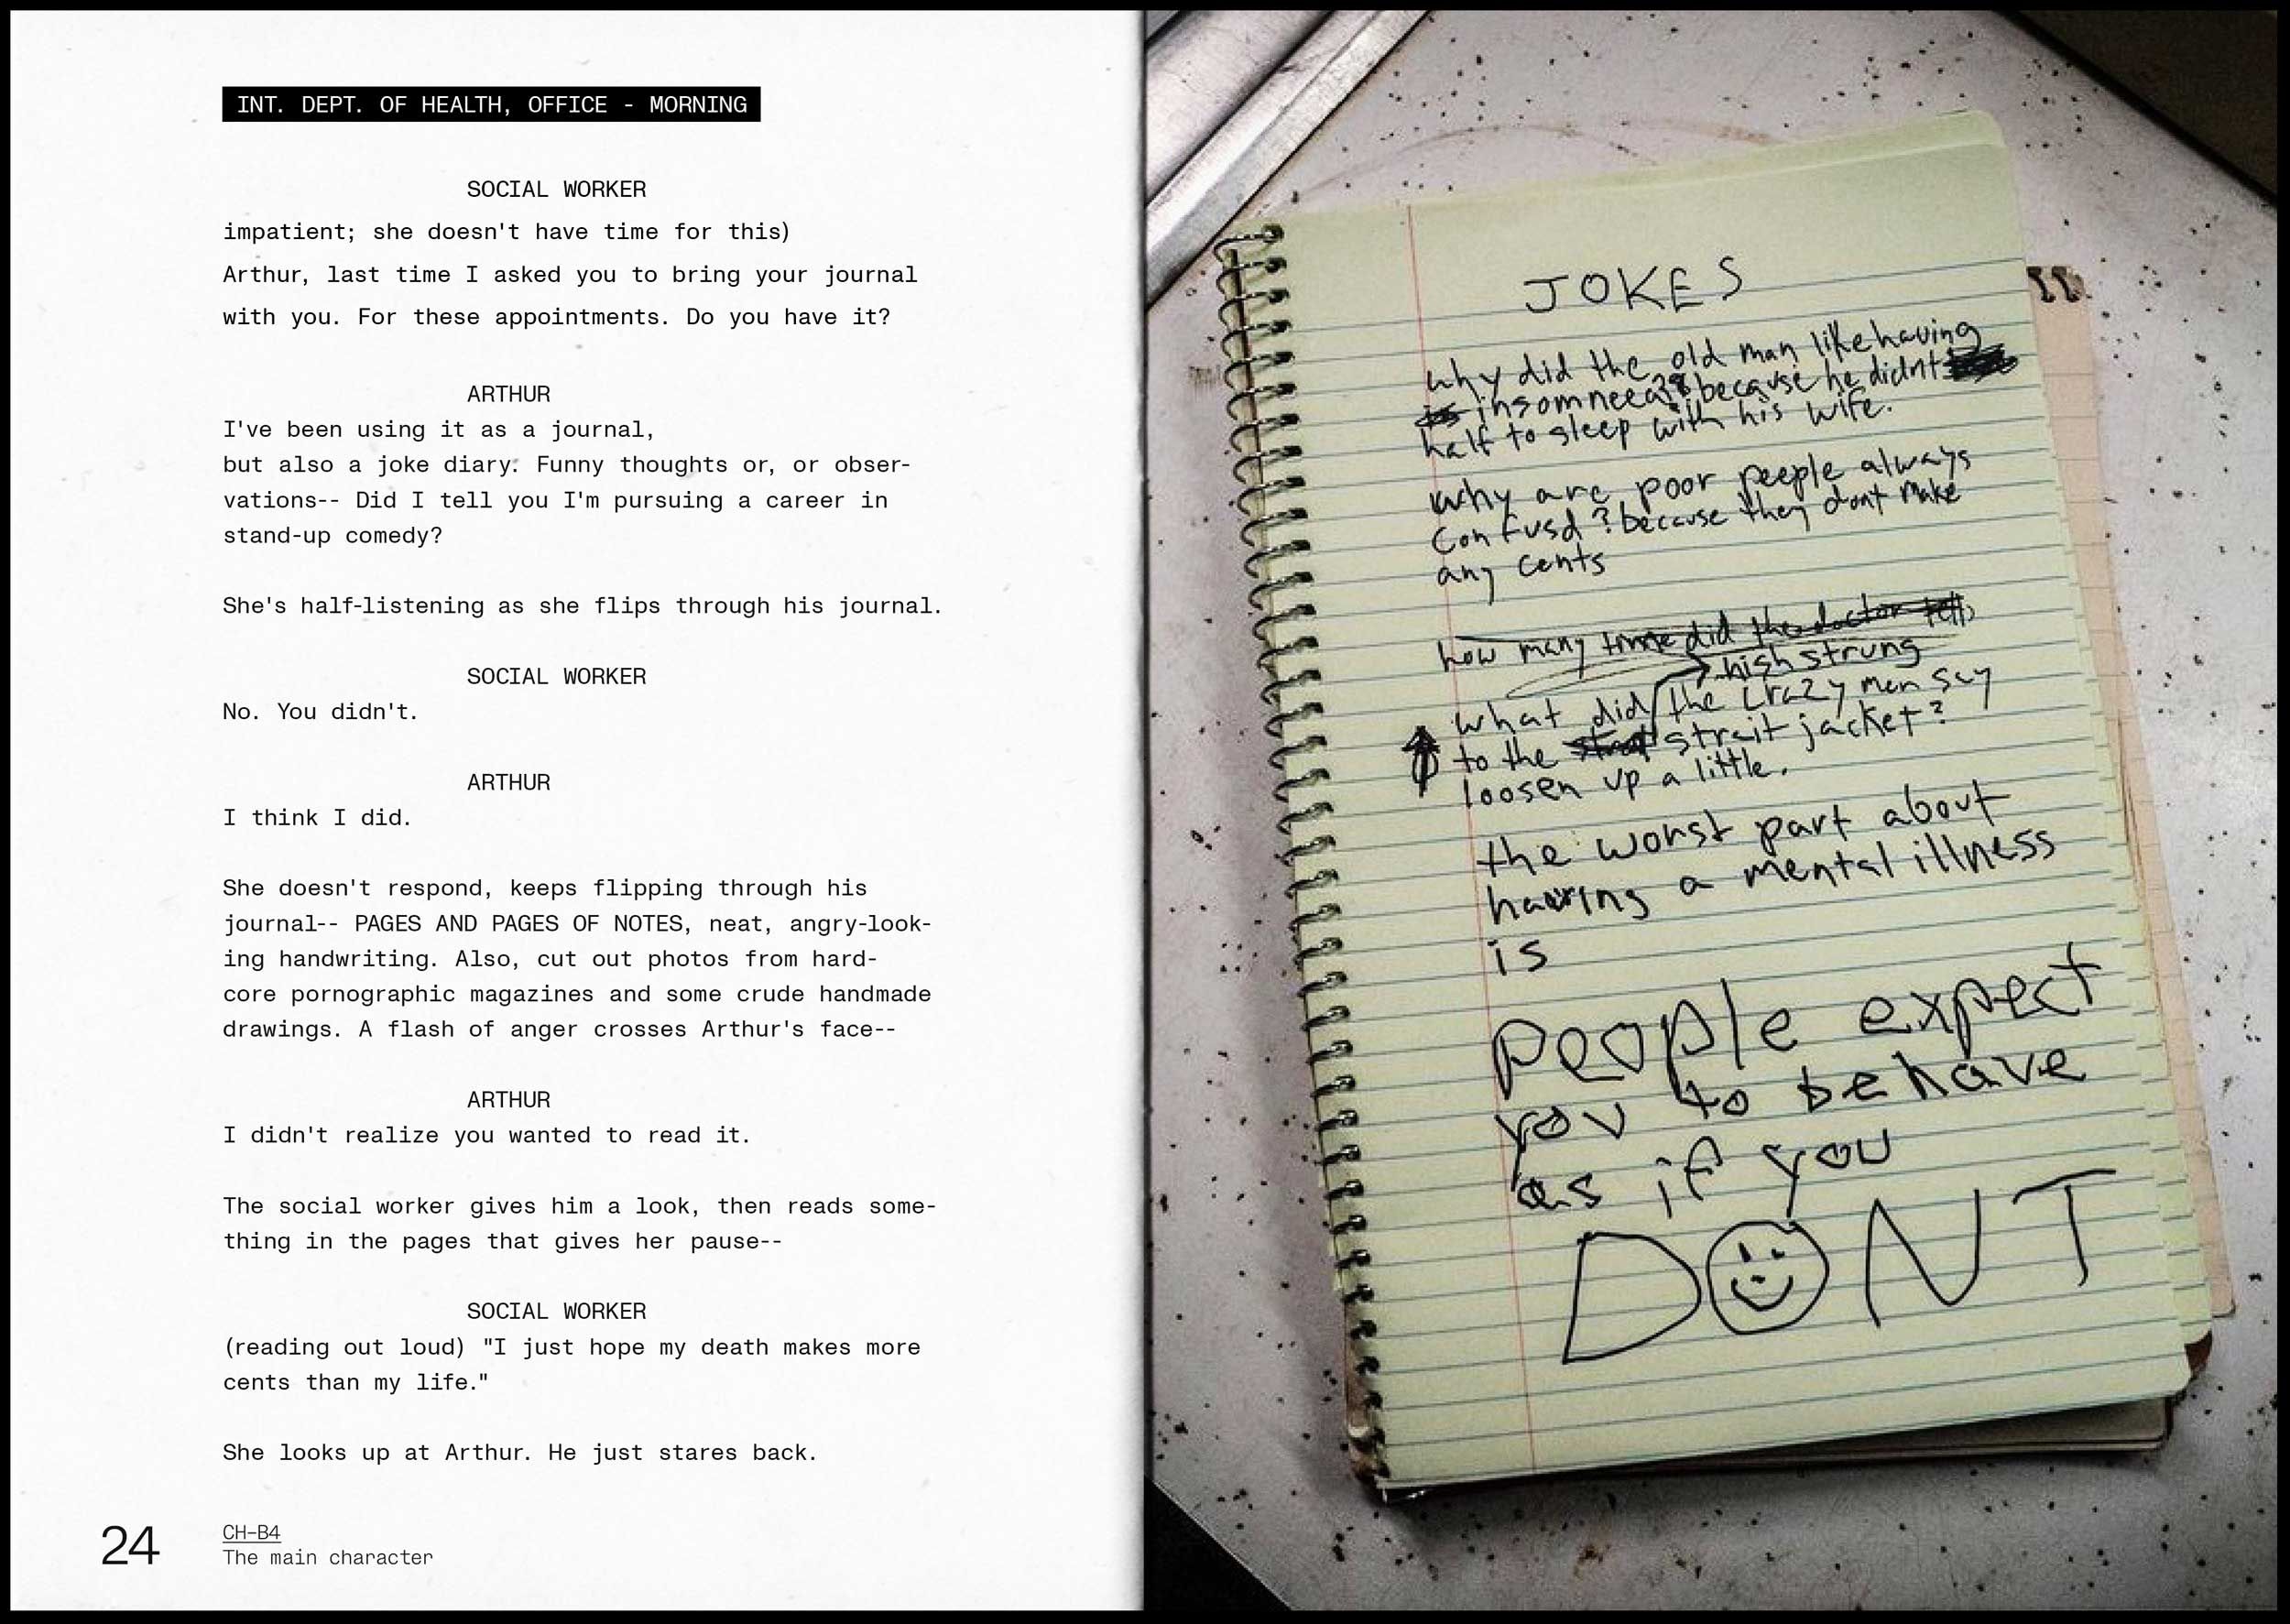 INT. DEPT. OF HEALTH, OFFICE - MORNING
SOCIAL WORKER
impatient; she doesn't have time for this)
Arthur, last time I asked you to bring your journal
with you. For these appointments. Do you have it?
ARTHUR
I've been using it as a journal,
but also a joke diary. Funny thoughts or, or obser-
vations-- Did I tell you I'm pursuing a career in
stand-up comedy?
She's half-listening as she flips through his journal.
SOCIAL WORKER
No. You didn't.
ARTHUR
I think I did.
She doesn't respond, keeps flipping through his
journal-- PAGES AND PAGES OF NOTES, neat, angry-look-
ing handwriting. Also, cut out photos from hard-
core pornographic magazines and some crude handmade
drawings. A flash of anger crosses Arthur's face--
ARTHUR
I didn't realize you wanted to read it.
The social worker gives him a look, then reads some-
thing in the pages that gives her pause--
SOCIAL WORKER
(reading out loud) "I just hope my death makes more
cents than my life."
She looks up at Arthur. He just stares back.
24
CH-B4
The main character
JOKES
why did the old man like having
insomneea? because he didnt
half to sleep with his wife.
why are poor peeple always
confusd? because they dont make
any cents
how many time did the doctor tell
high strung
what did the crazy man say
to the strait jacket?
loosen up a little.
the worst part about
having a mental illness
is
people expect
you to behave
as if you
DONT